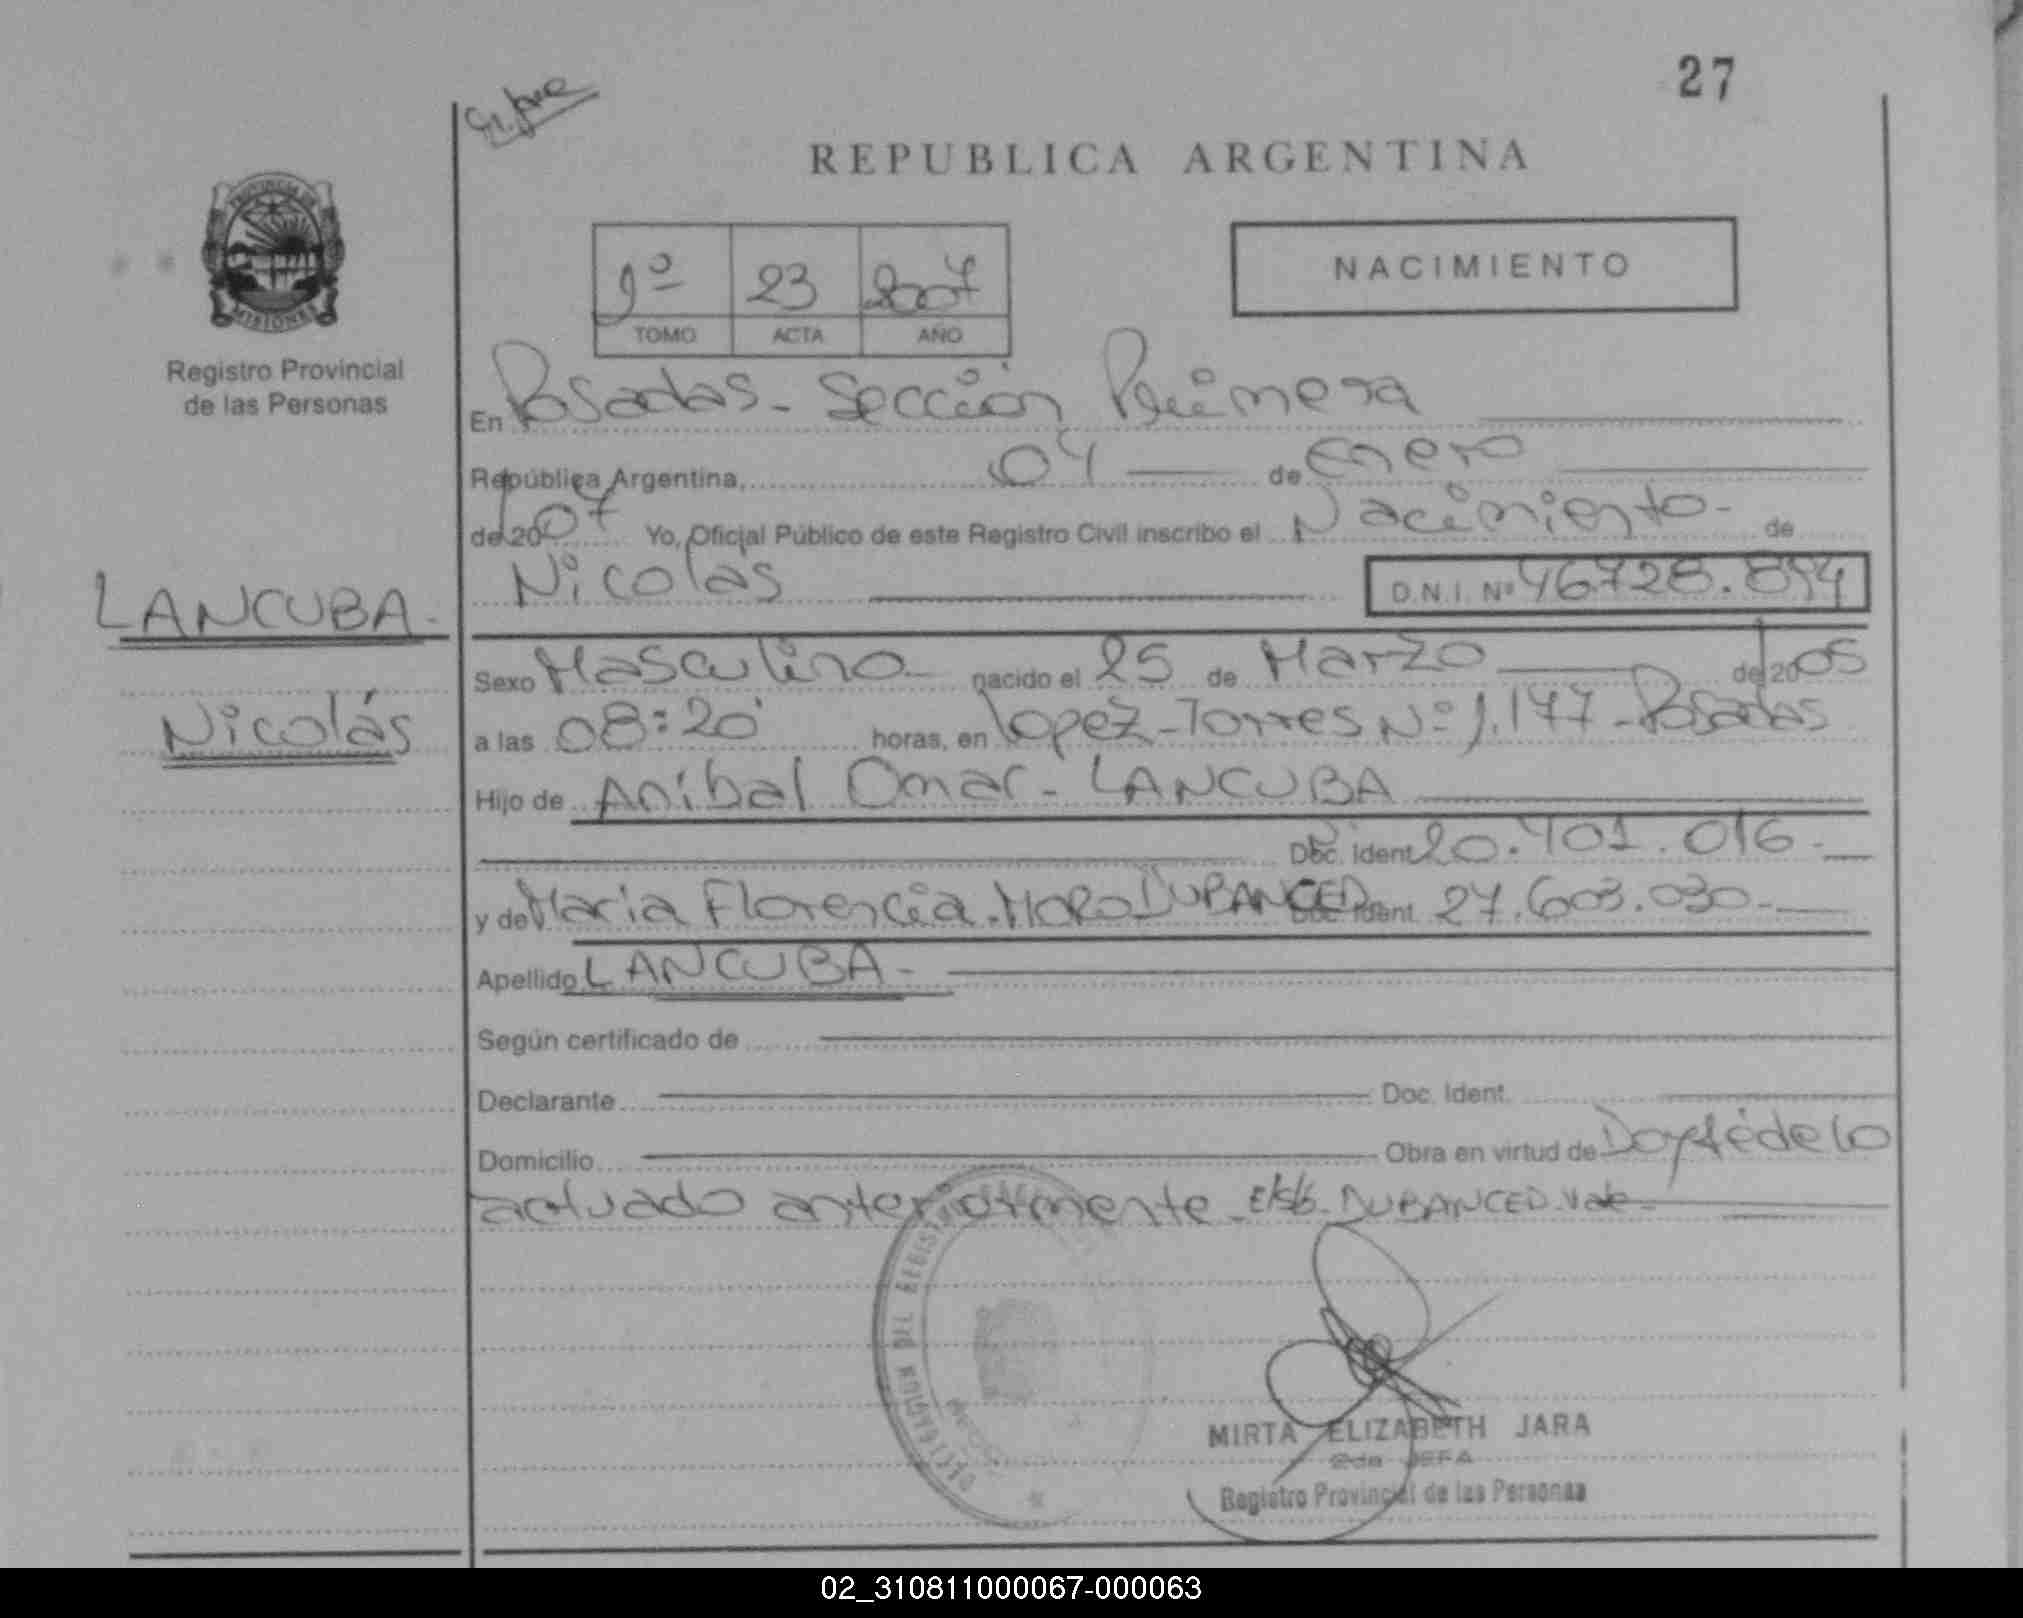 27
REPUBLICA ARGENTINA
PROVINCIA DE
MISIONES
Registro Provincial
de las Personas
1º 23 2007
TOMO ACTA AÑO
NACIMIENTO
En Posadas - Sección Primera
República Argentina, 04 de Enero
de 2007 Yo, Oficial Público de este Registro Civil inscribo el Nacimiento - de
Nicolas D.N.I. Nº 46.728.894
LANCUBA -
Nicolás
Sexo Masculino - nacido el 25 de Marzo de 2005
a las 08:20 horas, en Lopez-Torres Nº 1.177 - Posadas
Hijo de Aníbal Omar - LANCUBA
Doc. Ident. 20.401.016 -
y de Maria Florencia - MORO DUBANCED Doc. Ident. 27.603.030 -
Apellido LANCUBA -
Según certificado de
Declarante Doc. Ident.
Domicilio Obra en virtud de Doy fé de lo
actuado anteriormente - E/s/b. DUBANCED. Vale -
DEL REGISTRO
MIRTA ELIZABETH JARA
2da JEFA
Registro Provincial de las Personas
02_310811000067-000063